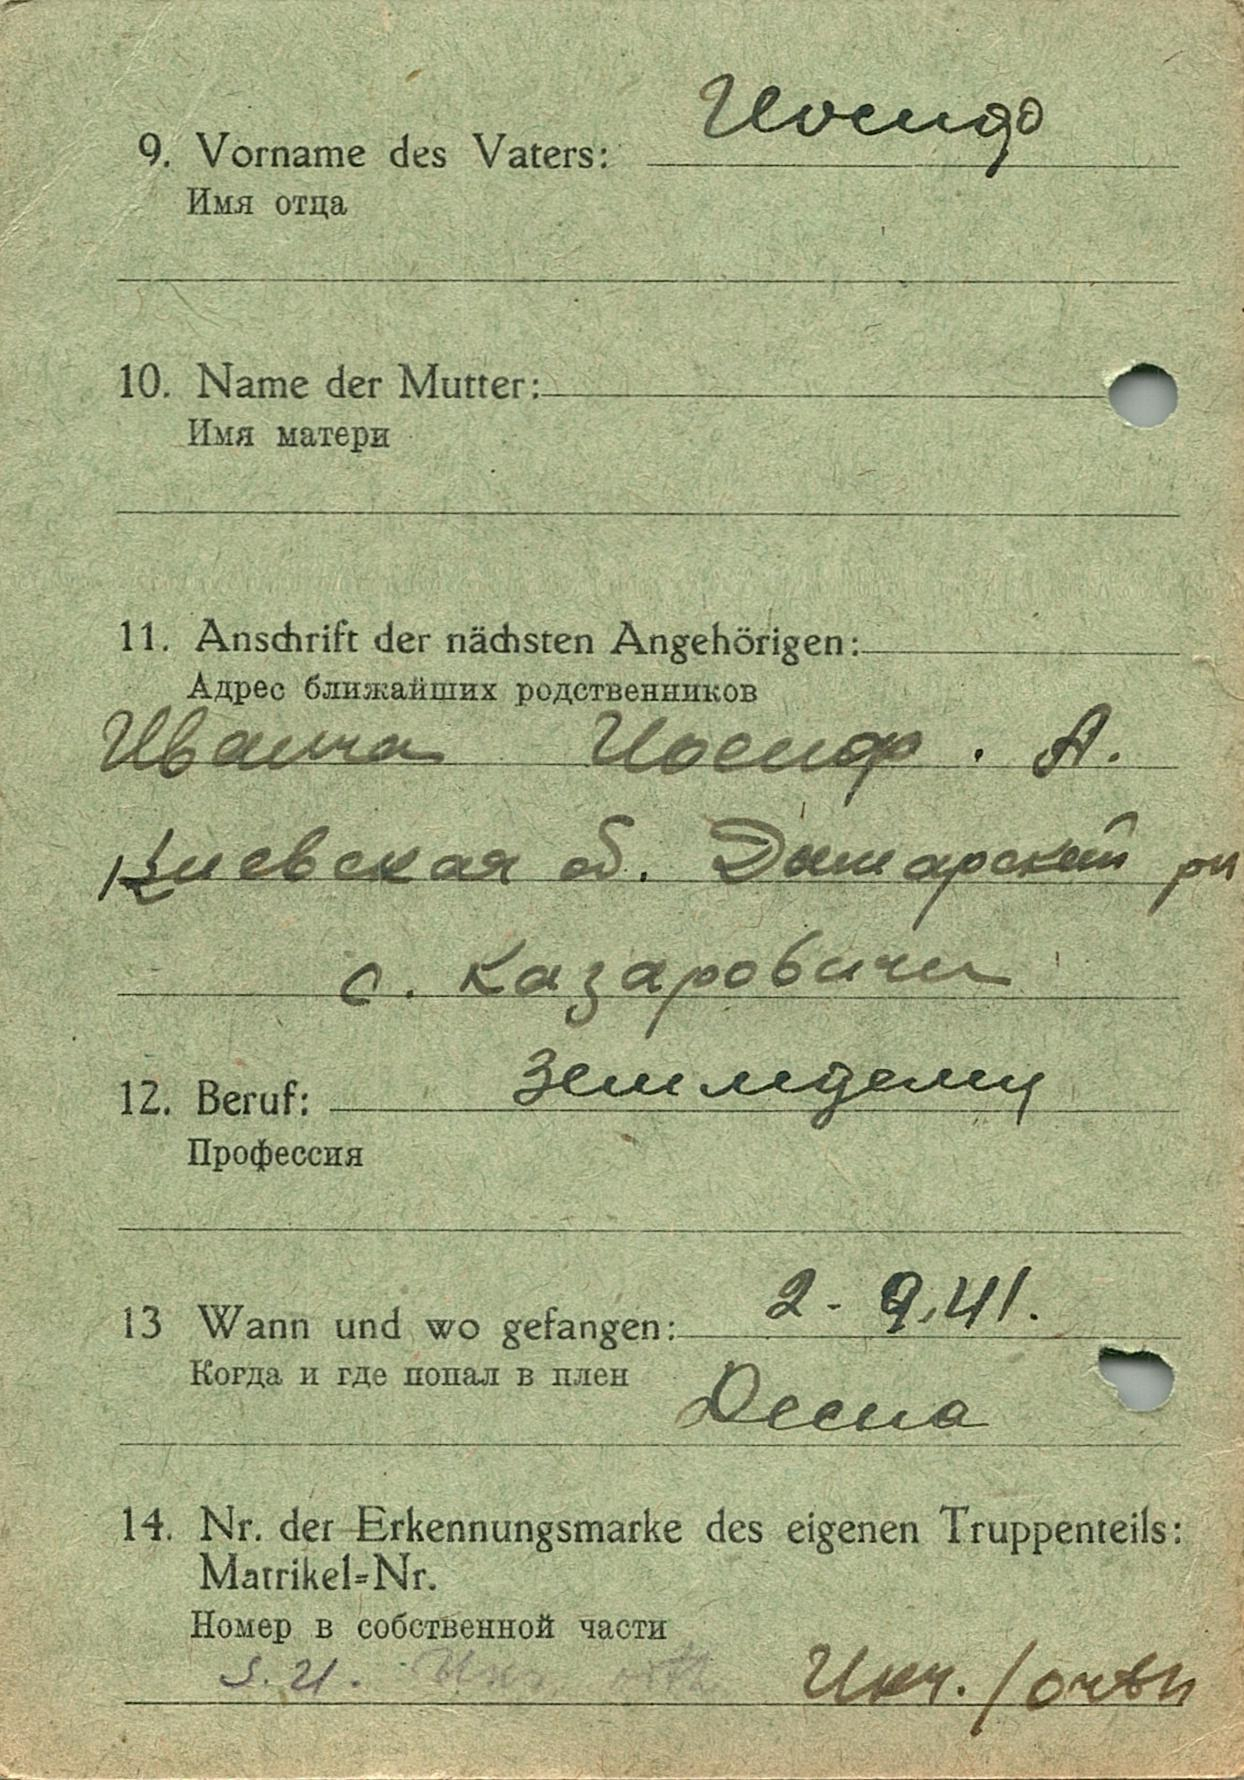 Иосиф
9. Vorname des Vaters:
Имя отца
10. Name der Mutter:
Имя матери
11. Anschrift der nächsten Angehörigen:
Адрес ближайших родственников
Иосиф. А.
Киевская об. Дымарский рн
с. Казаровичи
12. Beruf:
Профессия
2. 9.41.
13 Wann und wo gefangen:
Когда и где попал в плен
Десна
14. Nr. der Erkennungsmarke des eigenen Truppenteils:
Matrikel=Nr.
Номер в собственной части